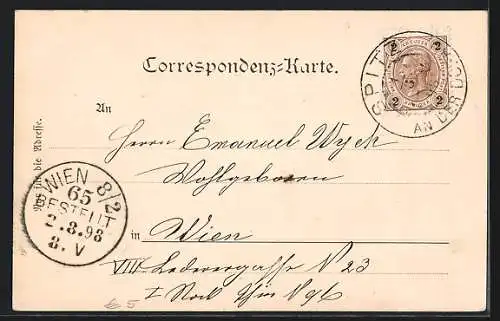 Correspondenz-Karte.
An
Herrn Emanuel Wyek
Wohlgeboren
in Wien
VIII Lederergasse N 23
I Stock Thür N 96
Nur für die Adresse.
WIEN 8/2
65
BESTELLT
2.8.98
8. V
2 2
2 2
SPIT
AN DER
€ 5